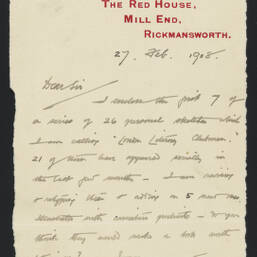 THE RED HOUSE,
MILL END,
RICKMANSWORTH.
27 Feb. 1908.
Dear Sir
I enclose the first 7 of
a series of 26 personal sketches which
I am calling "London Literary Clubmen."
21 of them have appeared serially in
the last few months - I am revising
& retyping them & adding on 5 new ones,
illustrated with caricature portraits - Do you
think they would make a book worth